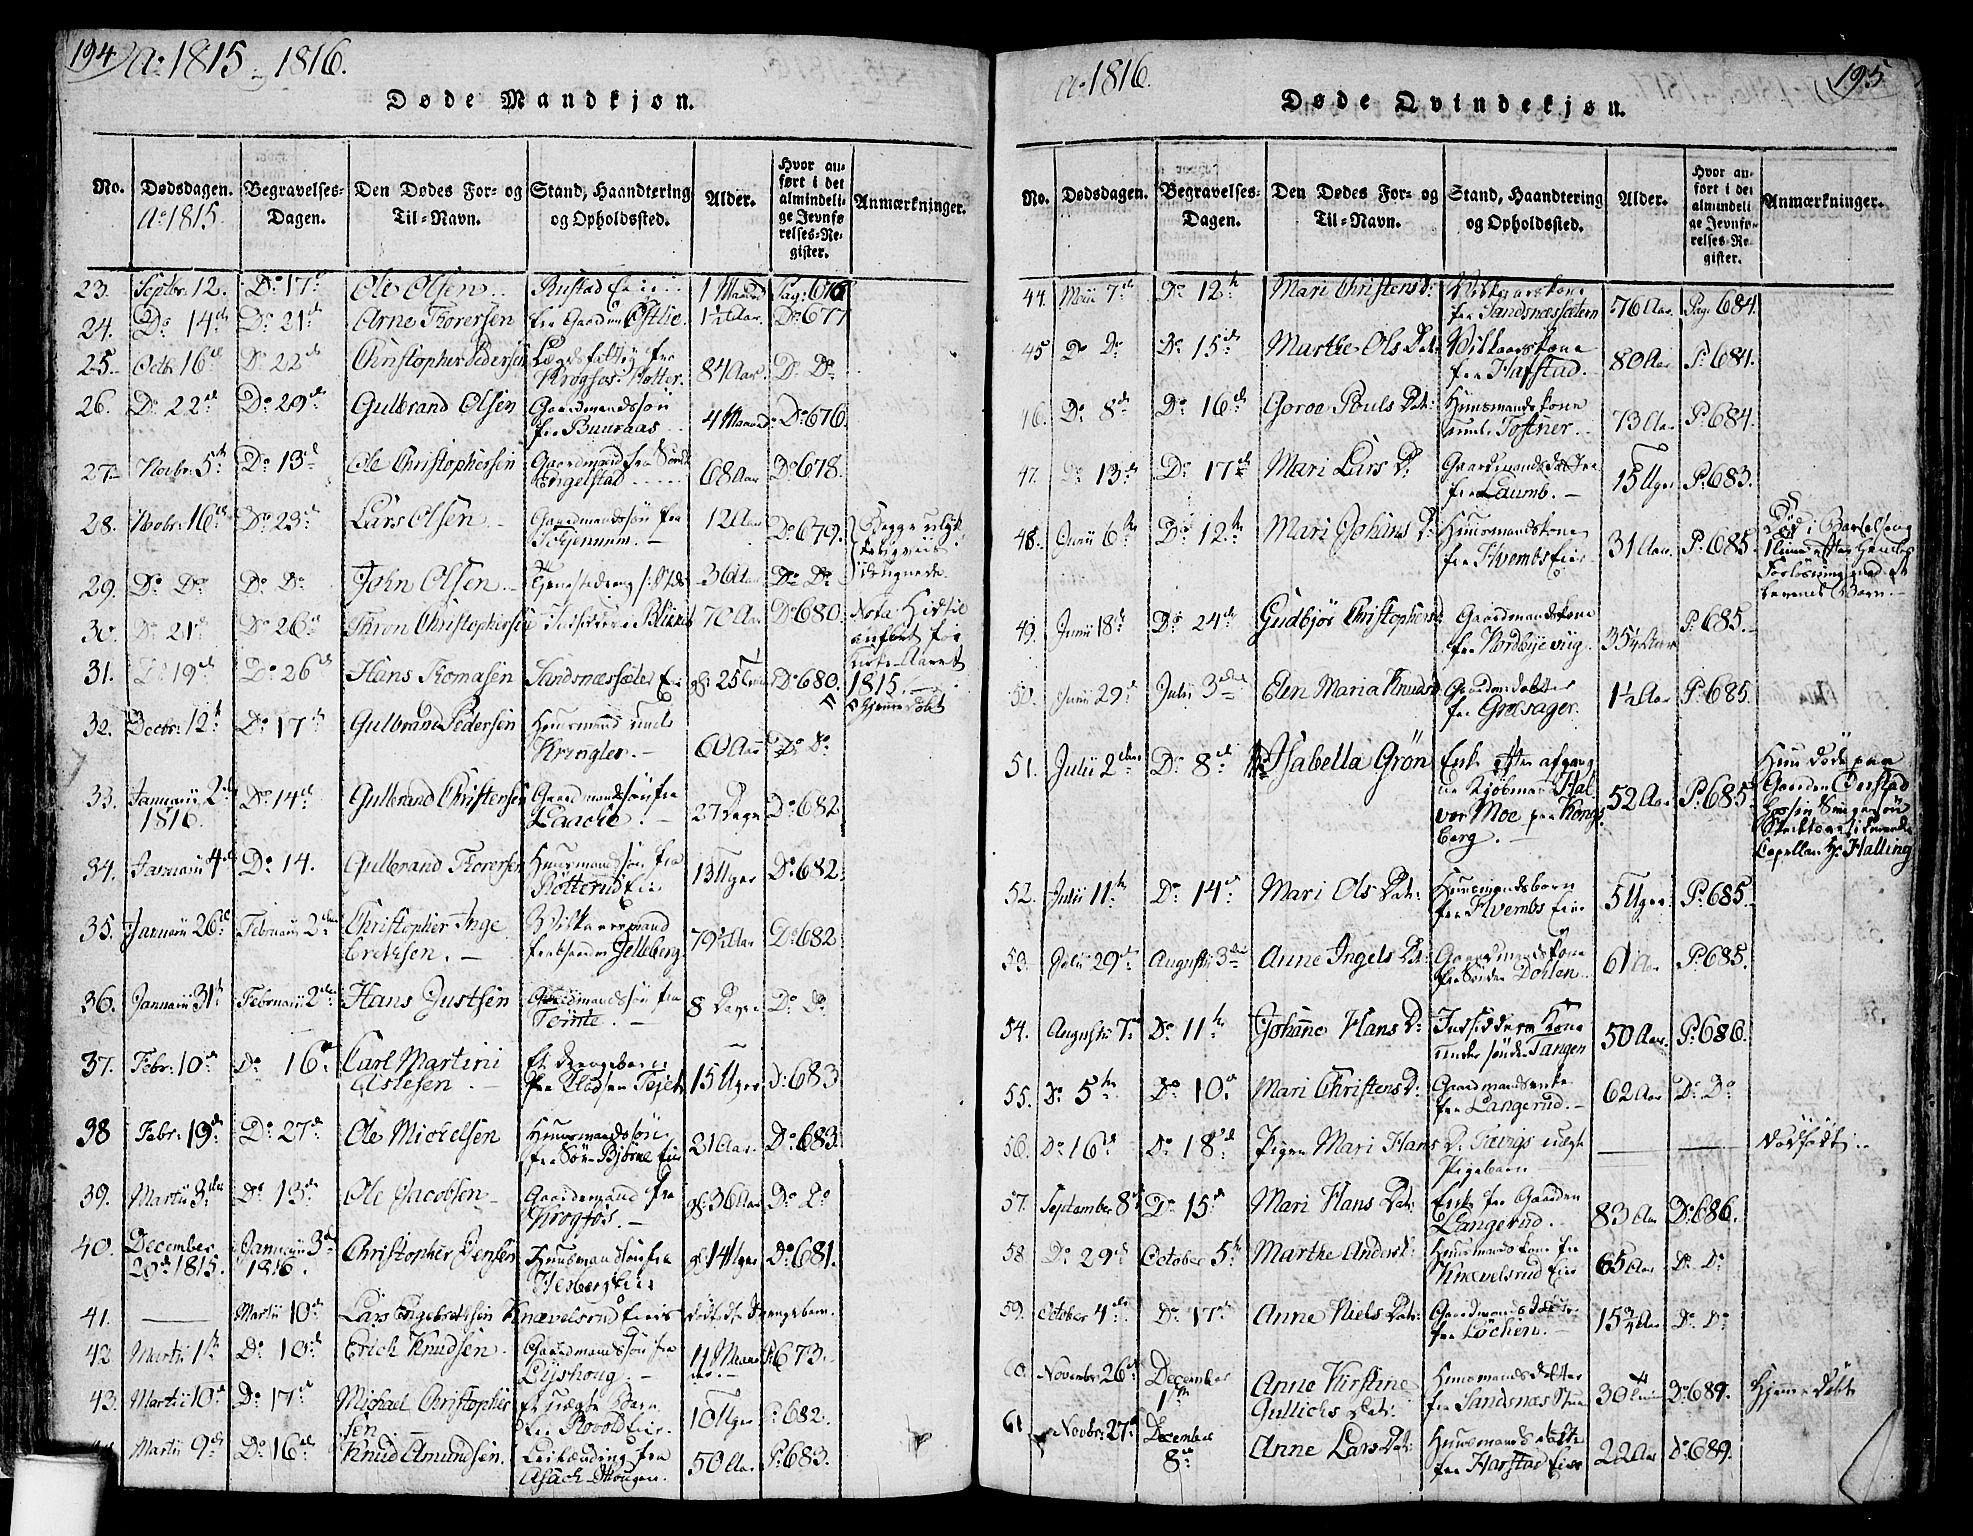 194
Aº 1815 - 1816.
Døde Mandkjøn.
No.
Dødsdagen.
Aº 1815.
Begravelses-
Dagen.
Den Dødes For- og
Til-Navn.
Stand, Haandtering
og Opholdssted.
Alder.
Hvor an-
ført i det
almindeli-
ge Jevnfø
relses-Re-
gister.
Anmærkninger.
23. Septbr. 12. Do 17 Ole Olsen Rustad Eie 1 Maaned Pag: 676
24. Do 14 Do 21 Arne Torersen fra Gaarden Østlie 1½ Aar. Do 677
25. Octbr 16 Do 22 Christopher Pedersen Lægdsfattig fra
Krogsøs Kotter. 84 Aar. Do Do
26. Do 22 Do 29 Gulbrand Olsen Gaardmandssøn
fra Buuraas 4 Maaned Do 676.
27. Novbr. 5 Do 13 Ole Christophersen Gaardmand fra Søndr
Engelstad 68 Aar Do 678.
28. Novbr. 16 Do 23 Lars Olsen Gaardmandssøn fra
12 Aar Do 679. Begge ulyk-
keligviis
druknede.
29. Do Do Do Do John Olsen 36 Aar Do Do
30. Do 21 Do 26 Thron Christophersen 70 Aar Do 680. Nota. Hidtil
anført for
Kirke-Aaret
1815.
31. Do 19 Do 26 Hans Tomasen Sandsnæssæter Eie gl: 25 Do 680
Hjemmedøbt
32. Decbr. 12 Do 17 Gulbrand Pedersen Huusmand under
Kringler. 60 Aar Do Do
33. Januarii 2
1816. Do 14 Gulbrand Christensen Gaardmandssøn fra
Laache. 27 Dage Do 682
34. Januarii 4 Do 14. Gulbrand Torersen Huusmandssøn fra
Rotterud Eie 13 Uger Do 682
35. Januarii 26 Februarii 2 Christopher Inge
Erichsen. Vilkaarsmand
Jelleberg 79½ Aar Do 682
36. Januarii 31 Februarii 2 Hans Justsen Gaardmandssøn fra
Tømte. 8 Dage Do Do
37. Febr: 10 Do 16 Carl Martini
Aslesen. Et Drengebarn
15 Uger Do 683
38 Febr: 19 Do 27 Ole Michelsen Huusmandssøn
fra Søn Bjørne Eie 21 Aar. Do 683
39. Martii 3 Do 13 Ole Jacobsen Gaardemand fra
Krogfos. gl: 36 Aar Do Do
40. December
29 1815. Januarii 3
1816. Christopher Jensen Huusmandssøn fra
gl: 14 Uger Do 681.
41. — Martii 10 Lars Engebretsen Knævelsrud Eies dødfødte Drengebarn.
42 Martii 1 Do 10 Erich Knudsen Gaardmandssøn fra
Lyshoug. 673.
43. Martii 10 Do 17 Michael Christopher
sen. Et uægte Barn
10 Uger P: 682.
Martii 9 Do 16 Knud Amundsen. fra
50 Aar P: 683.
195
Aº 1816.
Døde Qvindekjøn.
No.
Dødsdagen.
Begravelses-
Dagen.
Den Dødes For- og
Til-Navn.
Stand, Haandtering
og Opholdssted.
Alder.
Hvor an-
ført i det
almindeli
ge Jevnfø-
relses-Re-
gister.
Anmærkninger.
44. Maii 7 Do 12 Mari Christensd: Vilkaarskone
fra Sandsnæssætern 76 Aar. Pag. 684.
45 Do Do Do 15 Marthe Ols Datr: Vilkaarskone
fra Hafstad. 80 Aar P: 684.
46. Do 8 Do 16 Goroe Pouls Datr: Huusmandskone
under Tostner 73 Aar P: 684.
47. Do 13 Do 17 Mari Lars D: Gaardmandsdatter
fra Laumb. 15 Uger P: 683.
48. Junii 6 Do 12 Mari Johans D: Huusmandskone
fra Hvembs Eie 31 Aar. P: 685. Død i Barselseng
Forløsning med et
levende Barn.
49. Junii 18 Do 24 Gudbjør Christophersd Gaardmandskone
fra Nordbyevug. 35¼ Aar P: 685.
50. Junii 29 Julii 3 Elen Maria Knudsd Gaardmdsdatter
fra Grøsager. 1½ Aar P: 685.
51. Julii 2 Do 8 Isabella Grøn Enke efter afgang
ne Kjøbmand Hal
vor Moe paa Kongs
berg. 52 Aar P: 685. Huun døde paa
Gaarden
hos sin Svigersøn
Capellan Hr Halling
52. Julii 11 Do 14 Mari Ols Datr: Huusmandsbarn
fra Hvembs Eie 5 Uger P: 685.
53. Julii 29 Augustii 3 Anne Ingels Dr: Gaardmandskone
fra Søndre Dohlen 61 Aar P: 685.
54. Augustii 7 Do 11 Johanne Hans D: Indsidders Kone
under søndre Tangen 50 Aar. P: 686.
55. Do 5 Do 10. Mari Christens D: Gaardmandsenke
fra Langerud. 62 Aar Do Do
56. Do 16 Do 18 Pigen Mari Hans D: uægte
Pigebarn — — dødfødt.
57. September 8 Do 15 Mari Hans Datr: Enke fra Gaarden
Langerud. 83 Aar Do 686.
58 Do 29 October 5 Marthe Andersd: Huusmandskone fra
Knævelsrud Eie 65 Aar Do Do
59. October 4 Do 17 Anne Niels Datr: Gaardmandsdatter
fra Løchen. 15¾ Aar Do Do
60. Novembr 26 December
1 Anne Kirstine
Gullichs Datr: Huusmandsdatter
fra Sandsnæs 30 Do 689. Hjemmedøbt
61 Novbr: 27 December
8 Anne Lars Datr: Huusmandsdatter
fra Harstad Eie 22 Aar Do 689.